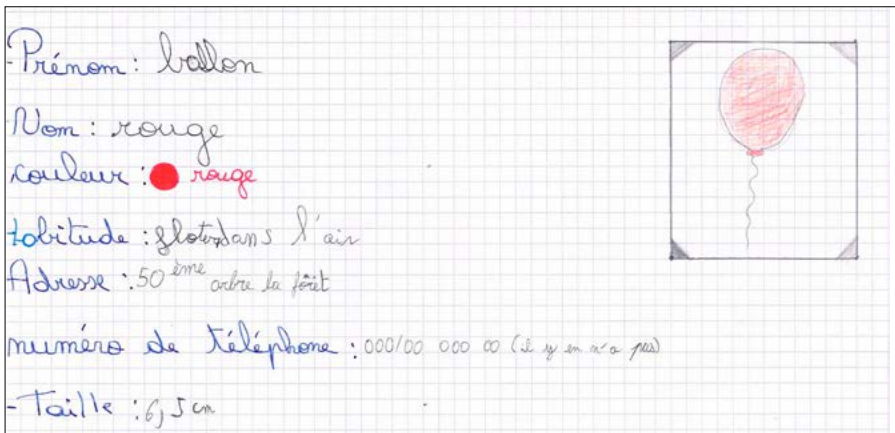 -Prénom: ballon
Nom: rouge
couleur: rouge
tobitude: floter dans l'air
Adresse: 50 ème arbre la fôrèt
numéro de téléphone: 000/00 000 00 (il y en n'a pas)
-Taille: 6,5 cm